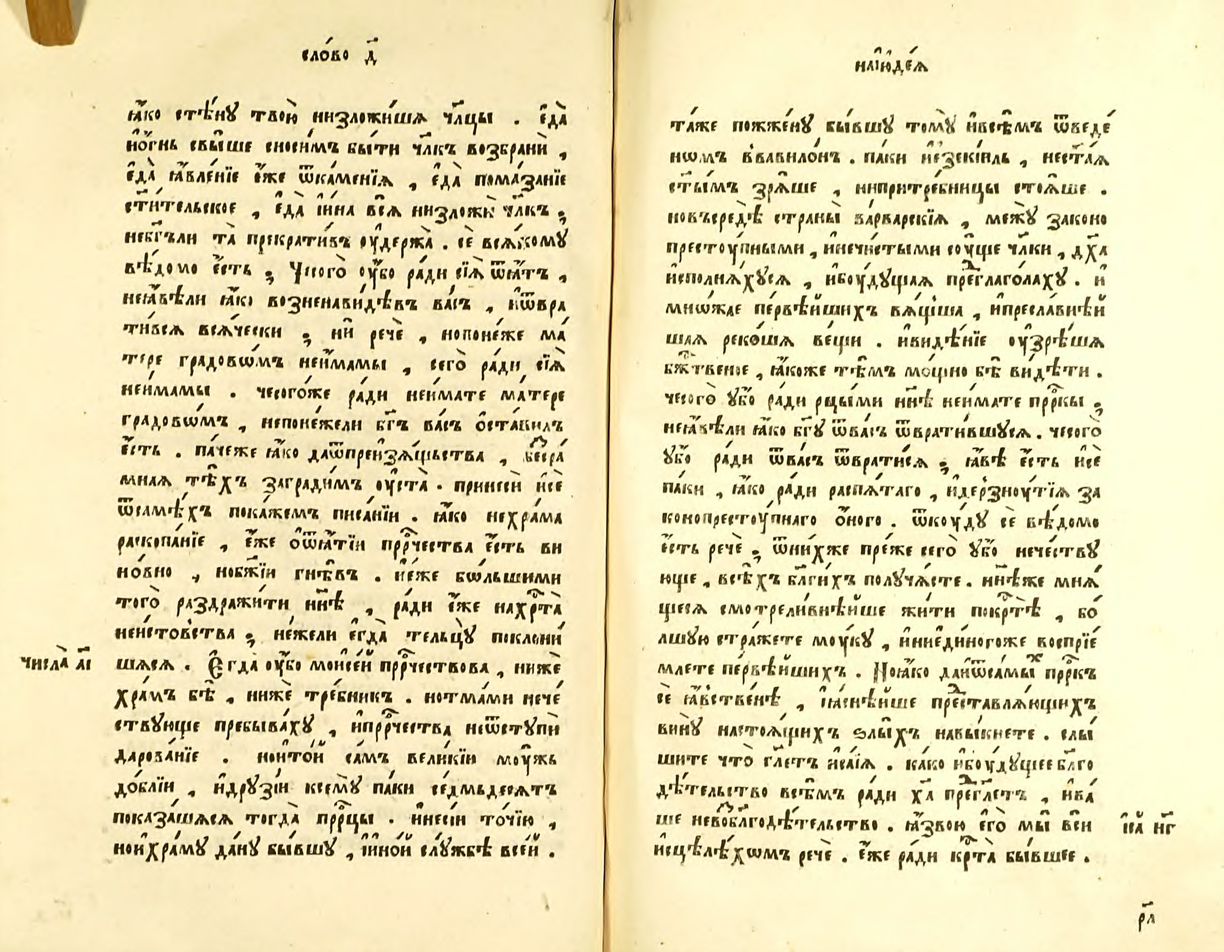 сло́во д҃
ꙗ҆́ко стѣ́нꙋ твою̀ низложи́шѧ чл҃цы . є҆да̀
и҆ѻ҆́гнь свы́ше сноси́мъ бы́ти чл҃къ возбранѝ ,
є҆да̀ ꙗ҆вле́нїе є҆́же ѿка́менїѧ , є҆да̀ пома́занїе
ст҃и́тельское , є҆да̀ і҆́на всѧ̀ низложѝ чл҃къ ;
небг҃ъ́ли та̀ прекрати́въ ᲂу҆держа̀ . сѐ всѧ́комꙋ
вѣ́домо є҆́сть ; чесогѡ̀ ᲂу҆́бо ра́ди сїѧ̀ ѿѧ́тъ ,
неꙗ҆́вѣли ꙗ҆́ко возненави́дѣвъ ва́съ , и҆ѿвра
ти́всѧ всѧ́чески ; нѝ речѐ , нопоне́же ма́
тере градовѡ́мъ неи҆́мамы , сегѡ̀ ра́ди сїѧ̀
неи҆́мамы . чесого́же ра́ди неи҆́мате ма́тере
градовѡ́мъ , непоне́жели бг҃ъ ва́съ ѡ҆ста́вилъ
є҆́сть . па́чеже ꙗ҆́ко даѿпреизѧ́щьства , бесра́
мнаѧ тѣ́хъ загради́мъ ᲂу҆ста̀ . принесѝ и҆сѐ
ѿсамѣ́хъ пока́жемъ писа́нїи . ꙗ҆́ко нехра́ма
раскопа́нїе , є҆́же ѡ҆ѿѧ́тїи прⷪ҇рчества є҆́сть ви
но́вно , нобж҃їи гнѣ́въ . и҆є҆́же бо́льшими
того̀ раздражи́ти ны́нѣ , ра́ди є҆́же нахрⷭ҇та̀
неи҆́стовства ; не́жели є҆гда̀ тельцꙋ̀ поклони́
шѧсѧ . Є҆гда̀ ᲂу҆́бо моѵсе́й прⷪ҇рчествова , нижѐ
хра́мъ бѣ̀ , нижѐ тре́бникъ . нотма́ми нече́
ствꙋюще пребыва́хꙋ , и҆прⷪ҇рчества неѿстꙋпѝ
дарова́нїе . нои҆то́й са́мъ вели́кїи мꙋ́жь
до́блїи , и҆дрꙋзі́и ксемꙋ̀ па́ки се́дмьдесѧтъ
показа́шѧсѧ тогда̀ прⷪ҇рцы . и҆несі́и то́чїю ,
нои҆хра́мꙋ да́нꙋ бы́вшꙋ , и҆и҆но́й слꙋ́жбѣ все́й .
числа̀ а҃і
наі҆ꙋде́ѧ
та́же пожже́нꙋ бы́вшꙋ томꙋ̀ и҆всѣ́мъ ѿведе́
нѡмъ в̾вавилѡ́нъ . па́ки і҆езекі́иль , нест҃а́ѧ
ст҃ы́мъ зрѧ́ше , нипритре́бницы стоѧ́ше .
новъсредѣ̀ страны̀ ва́рварскїѧ , межꙋ̀ законо
престꙋ́пными , и҆нечи́стыми сꙋ́ще чл҃ки , дх҃а
и҆сполнѧ́хꙋсѧ , и҆бꙋ́дꙋщаѧ преⷣглаго́лахꙋ . и҆
мно́жае первѣ́йшихъ вѧ́щша , и҆пресла́внѣй
шаѧ реко́шѧ ве́щи . и҆видѣ́нїе ᲂу҆зрѣ́шѧ
бж҃твеное , ꙗ҆́коже тѣ́мъ мо́щно бѣ̀ ви́дѣти .
чесогѡ̀ ꙋ҆́бо ра́ди рцы́ми нн҃ѣ неи҆́мате прⷪ҇ркы ;
неꙗ҆́вѣли ꙗ҆́ко бг҃ꙋ ѿва́съ ѿврати́вшꙋсѧ . чесогѡ̀
ꙋ҆́бо ра́ди ѿва́съ ѿврати́сѧ ; ꙗ҆́вѣ є҆́сть и҆сѐ
па́ки , ꙗ҆́ко ра́ди распѧ́таго , и҆де́рзнꙋтїѧ за
конопрестꙋ́пнаго ѻ҆́ного . ѿкꙋ́дꙋ сѐ вѣ́домо
є҆́сть речѐ ; ѿни́хже пре́же сегѡ̀ ꙋ҆́бо нече́ствꙋ
юще , всѣ́хъ бл҃ги́хъ полꙋча́сте . нн҃ѣже мнѧ́
щесѧ смотрели́внѣйше жи́ти покрⷭ҇тѣ̀ , бо́
лшꙋю стра́жете мꙋ́кꙋ , и҆ниеди́ногоже воспрїе́
млете первѣ́йшихъ . Ноꙗ҆́ко даи҆ѿсамы́хъ прⷪ҇ркъ
сѐ ꙗ҆́вственѣ , и҆ꙗ҆снѣ́йше преⷣставлѧ́ющихъ
винꙋ̀ настоѧ́щихъ ѕлы́хъ навы́кнете . слы́
шите что̀ гл҃етъ и҆са́їѧ . ка́ко и҆бꙋ́дꙋщее бл҃го
дѣ́тельство всѣ́мъ ра́ди хⷭ҇а̀ преⷣгл҃етъ , и҆ва́
ше невоⷥбл҃годѣ́тельство . ꙗ҆́звою є҆гѡ̀ мы̀ всѝ
и҆сцѣлѣ́хѡмъ речѐ . є҆́же ра́ди крⷭ҇та̀ бы́вшее .
и҆са̀ н҃г
р҃л